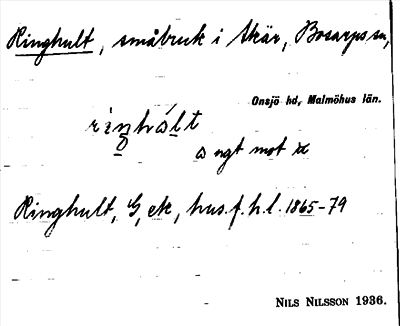 Ringhult, småbruk i Skär, Bosarps sn,
Onsjö hd, Malmöhus län.
ringhált
a ngt mot æ
Ringhult, G, ek, hus. f. h. l. 1865–79
NILS NILSSON 1936.